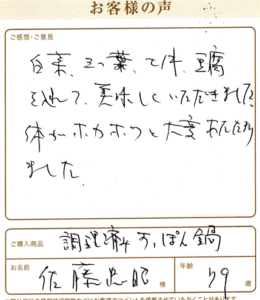 お客様の声
ご感想・ご意見
白菜、三つ葉、で件、豆腐
を入れて、美味しくいただきました
体がホカホカと大変あたたまり
ました
ご購入商品
調理済みすっぽん鍋
お名前
佐藤忠昭 様
年齢
79 歳